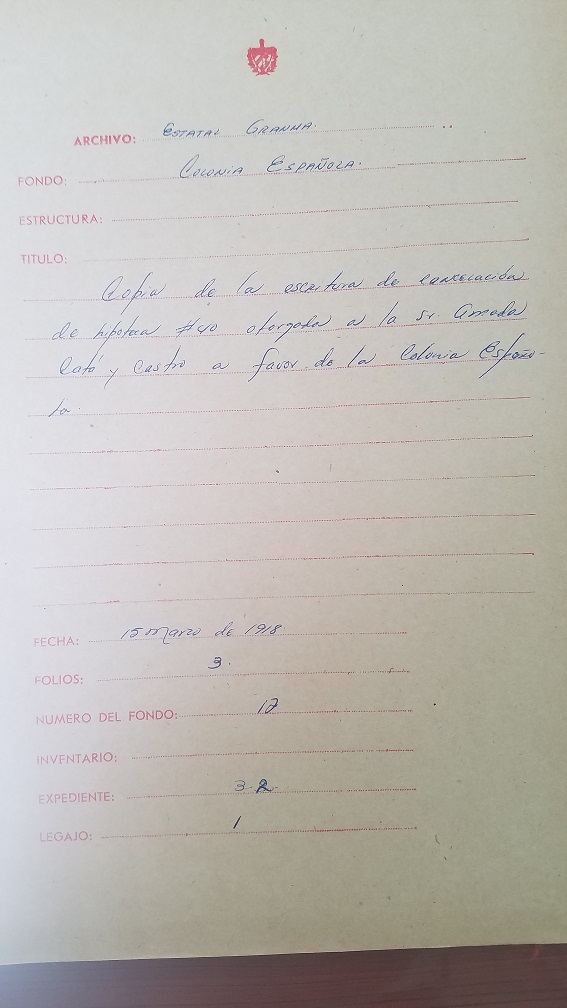 ARCHIVO: Estatal Granma.
FONDO: Colonia Española.
ESTRUCTURA:
TITULO:
Copia de la escritura de cancelación
de hipoteca #40 otorgada a la sr. Amada
Cató y Castro a favor de la Colonia Españo-
la.
FECHA: 15 Marzo de 1918
FOLIOS: 3.
NUMERO DEL FONDO: 12
INVENTARIO:
EXPEDIENTE: 32
LEGAJO: 1